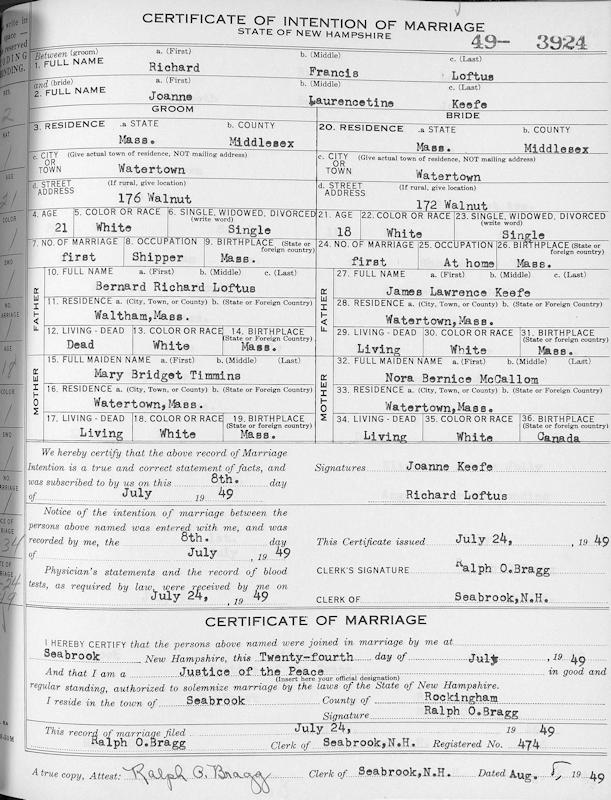 CERTIFICATE OF INTENTION OF MARRIAGE
STATE OF NEW HAMPSHIRE
49- 3924
Between (groom) a. (First) b. (Middle) c. (Last)
1. FULL NAME Richard Francis Loftus
and (bride) a. (First) b. (Middle) c. (Last)
2. FULL NAME Joanne Laurencetine Keefe
GROOM BRIDE
3. RESIDENCE .a STATE b. COUNTY 20. RESIDENCE .a STATE b. COUNTY
Mass. Middlesex Mass. Middlesex
c. CITY OR TOWN (Give actual town of residence, NOT mailing address) c. CITY OR TOWN (Give actual town of residence, NOT mailing address)
Watertown Watertown
d. STREET ADDRESS (If rural, give location) d. STREET ADDRESS (If rural, give location)
176 Walnut 172 Walnut
4. AGE 5. COLOR OR RACE 6. SINGLE, WIDOWED, DIVORCED (write word) 21. AGE 22. COLOR OR RACE 23. SINGLE, WIDOWED, DIVORCED (write word)
21 White Single 18 White Single
7. NO. OF MARRIAGE 8. OCCUPATION 9. BIRTHPLACE (State or foreign country) 24. NO. OF MARRIAGE 25. OCCUPATION 26. BIRTHPLACE (State or foreign country)
first Shipper Mass. first At home Mass.
FATHER 10. FULL NAME a. (First) b. (Middle) c. (Last) FATHER 27. FULL NAME a. (First) b. (Middle) c. (Last)
Bernard Richard Loftus James Lawrence Keefe
11. RESIDENCE a. (City, Town, or County) b. (State or Foreign Country) 28. RESIDENCE a. (City, Town, or County) b. (State or Foreign Country)
Waltham,Mass. Watertown,Mass.
12. LIVING - DEAD 13. COLOR OR RACE 14. BIRTHPLACE (State or Foreign Country) 29. LIVING - DEAD 30. COLOR OR RACE 31. BIRTHPLACE (State or Foreign Country)
Dead White Mass. Living White Mass.
MOTHER 15. FULL MAIDEN NAME a. (First) b. (Middle) (Last) MOTHER 32. FULL MAIDEN NAME a. (First) b. (Middle) (Last)
Mary Bridget Timmins Nora Bernice McCallom
16. RESIDENCE a. (City, Town, or County) b. (State or Foreign Country) 33. RESIDENCE a. (City, Town, or County) b. (State or Foreign Country)
Watertown,Mass. Watertown,Mass.
17. LIVING - DEAD 18. COLOR OR RACE 19. BIRTHPLACE (State or foreign country) 34. LIVING - DEAD 35. COLOR OR RACE 36. BIRTHPLACE (State or foreign country)
Living White Mass. Living White Canada
We hereby certify that the above record of Marriage
Intention is a true and correct statement of facts, and
was subscribed to by us on this 8th. day
of July 19 49
Signatures Joanne Keefe
Richard Loftus
Notice of the intention of marriage between the
persons above named was entered with me, and was
recorded by me, the 8th. day
of July , 19 49
This Certificate issued July 24, , 19 49
Physician's statements and the record of blood
tests, as required by law, were received by me on
July 24, , 19 49
CLERK'S SIGNATURE Ralph O.Bragg
CLERK OF Seabrook,N.H.
CERTIFICATE OF MARRIAGE
I HEREBY CERTIFY that the persons above named were joined in marriage by me at
Seabrook New Hampshire, this Twenty-fourth day of July , 19 49
And that I am a Justice of the Peace in good and
(Insert here your official designation)
regular standing, authorized to solemnize marriage by the laws of the State of New Hampshire.
I reside in the town of Seabrook County of Rockingham
Signature Ralph O.Bragg
This record of marriage filed July 24, 19 49
Ralph O.Bragg Clerk of Seabrook,N.H. Registered No. 474
A true copy, Attest: Ralph O. Bragg Clerk of Seabrook,N.H. Dated Aug. 5, 19 49